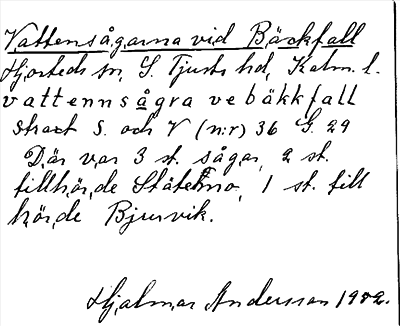 Vattensågarna vid Bäckfall
Hjorteds sn, S. Tjusts hd, Kalm. l.
vattennsågra ve bäkkfall
strax S. och V (n:r) 36 G. 29
Där var 3 st. sågar, 2 st.
tillhörde Stäte, 1 st. till
hörde Bjurvik.
Hjalmar Andersson 1982.